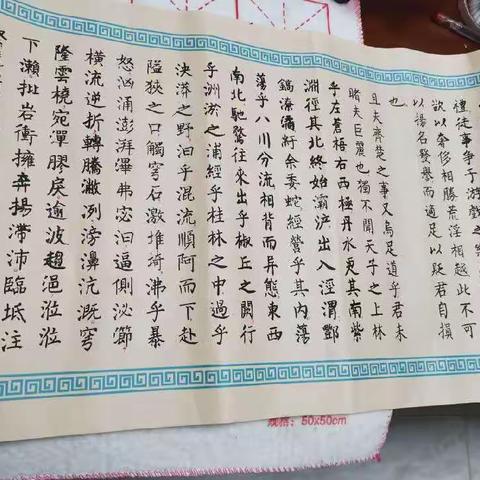 禮徒事爭于游戲之
欲以奢侈相勝荒淫相越此不可
以揚名發譽而適足以貶君自損
也
且夫齊楚之事又烏足道乎君未
睹夫巨麗也獨不聞天子之上林
乎左蒼梧右西極丹水更其南紫
淵徑其北終始灞滻出入涇渭酆
鎬潦潏紆余委蛇經營乎其內蕩
蕩乎八川分流相背而異態東西
南北馳騖往來出乎椒丘之闕行
乎洲淤之浦經乎桂林之中過乎
泱漭之野汩乎混流順阿而下赴
隘狹之口觸穹石激堆埼沸乎暴
怒洶涌澎湃滭弗宓汩逼側泌節
橫流逆折轉騰潎洌滂濞沆溉穹
隆雲橈宛潬膠戾逾波趨浥涖涖
下瀨批岩衝擁奔揚滯沛臨坻注
规格：50x50cm